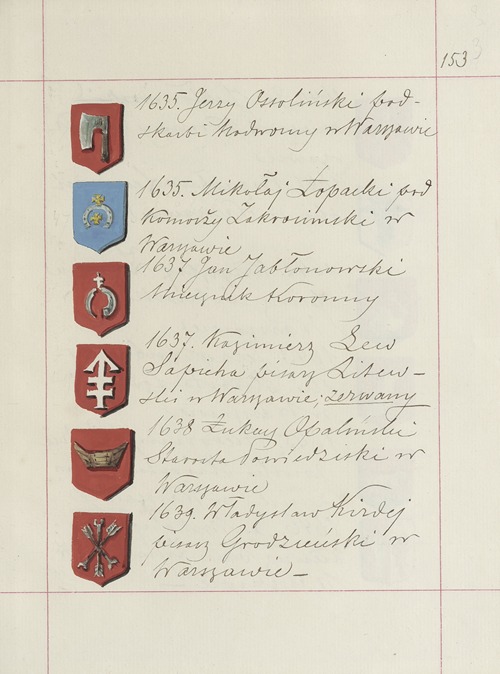 153
1635. Jerzy Ossoliński pod-
skarbi Nadworny w Warszawie
1635. Mikołaj Łopacki pod
Komorzy Zakroczimski w
Warszawie
1637 Jan Jabłonowski
Miecznik Koronny
1637. Kazimierz Lew
Sapieha pisarz Litew-
ski w Warszawie, zerwany
1638 Łukasz Opaliński
Starosta w
Warszawie
1639. Władysław Kirdej
pisarz Grodzieński w
Warszawie_